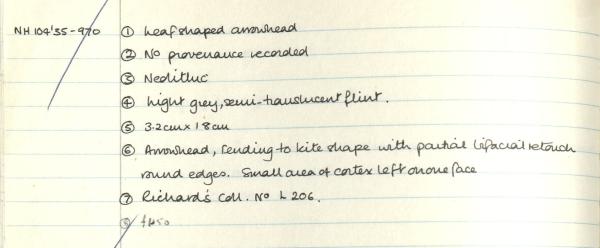 NH104'35-970 ① Leaf shaped arrowhead
② No provenance recorded
③ Neolithic
④ Light grey, semi-translucent flint.
⑤ 3.2cm x 1.8cm
⑥ Arrowhead, tending to kite shape with partial bifacial retouch
round edges. Small area of cortex left on one face
⑦ Richard's Coll. No L 206.
⑧ £150